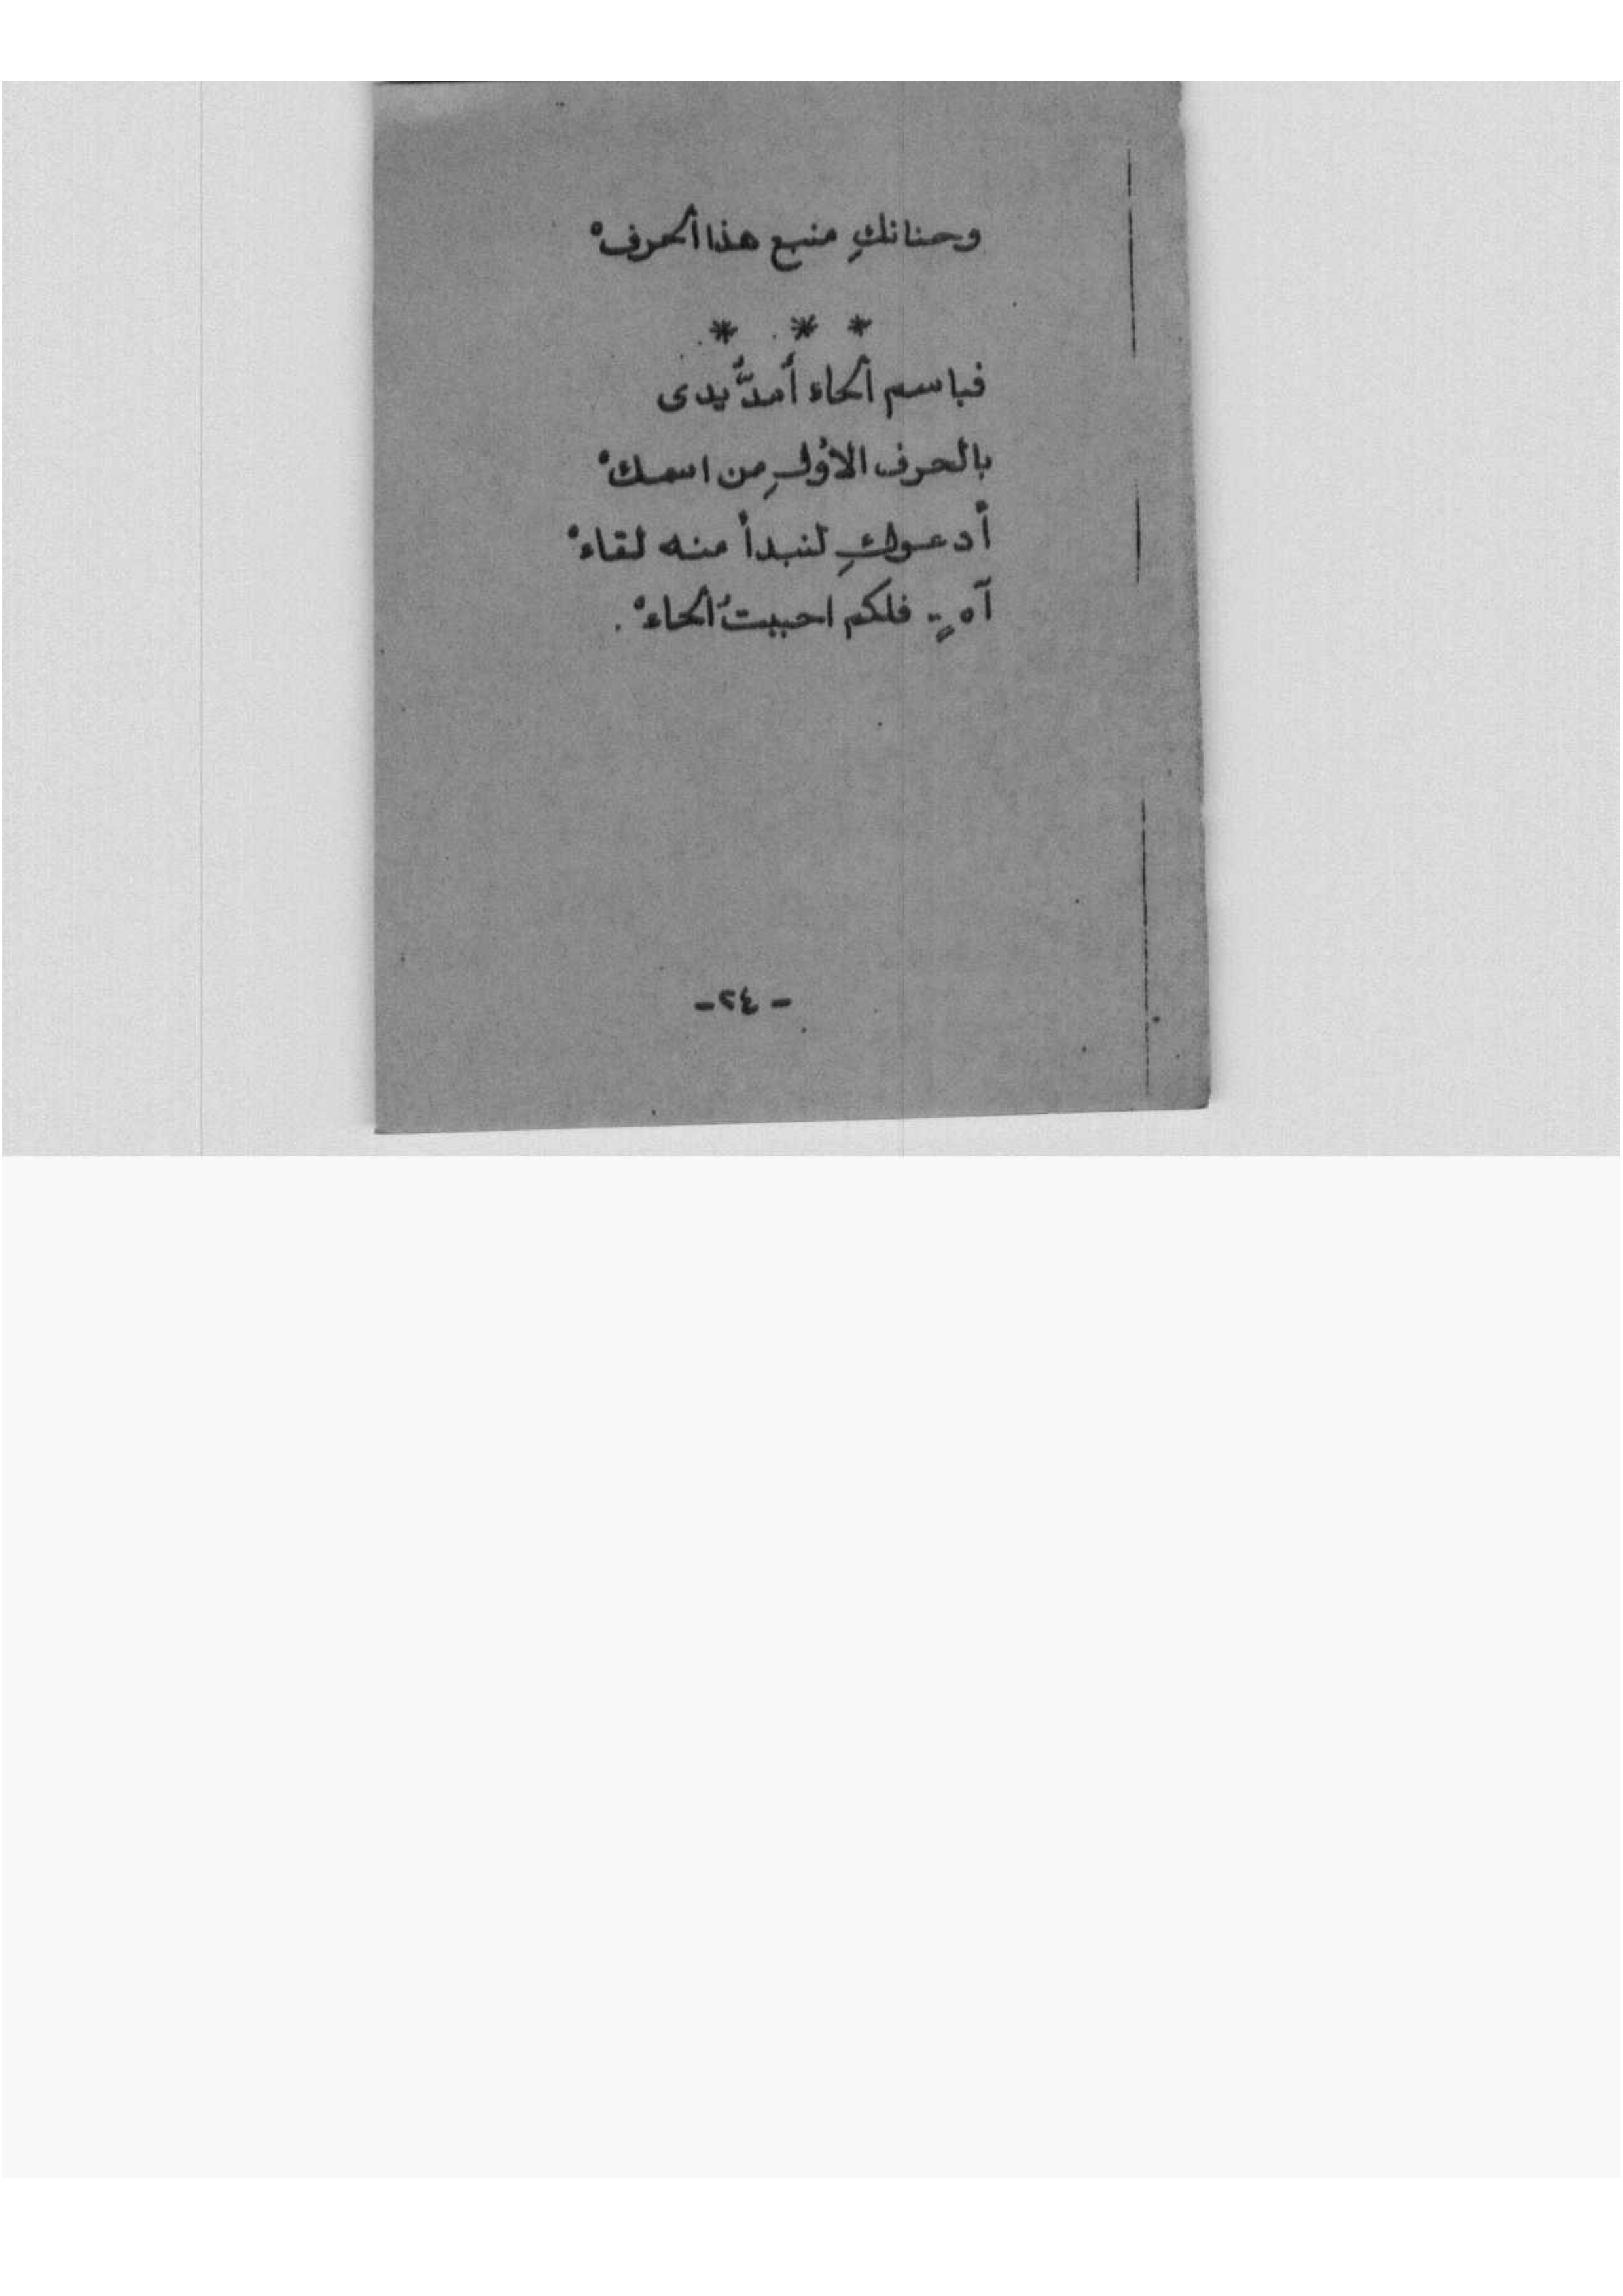 وحنانكِ منبع هذا الحرفْ
* * *
فباسم الحاء أَمدُّ يدى
بالحرف الأوّلِ من اسمكْ
أدعوكِ لنبدأ منه لقاءْ
آهٍ .. فلكم احببتُ الحاءْ .
- ٢٤ -